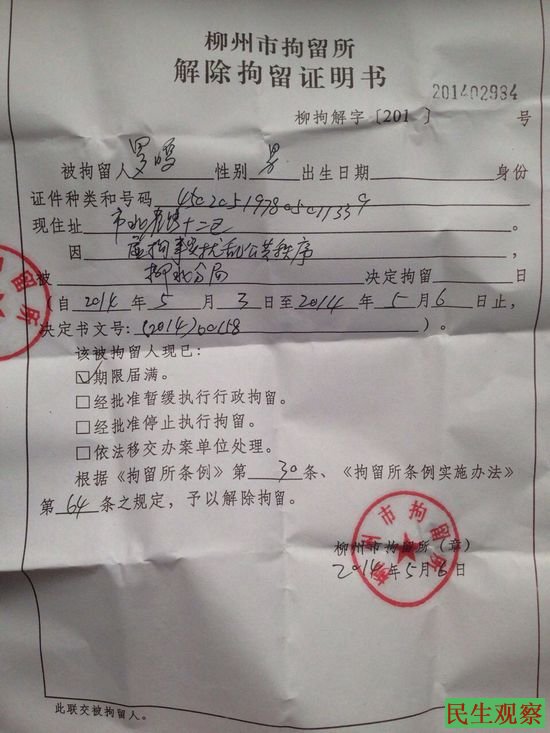 柳州市拘留所
解除拘留证明书
201402984
柳拘解字〔201 〕 号
被拘留人 性别 男 出生日期 身份
证件种类和号码
现住址 市 十二
因 虚构事实扰乱公共秩序
被 柳北分局 决定拘留 日
(自 2014 年 5 月 3 日至 2014 年 5 月 6 日止,
决定书文号: (2014)00158 )。
该被拘留人现已:
☑期限届满。
□经批准暂缓执行行政拘留。
□经批准停止执行拘留。
□依法移交办案单位处理。
根据《拘留所条例》第 30 条、《拘留所条例实施办法》
第 64 条之规定,予以解除拘留。
柳州市拘留所(章)
2014年5月6日
柳州市拘留所
此联交被拘留人。
民生观察